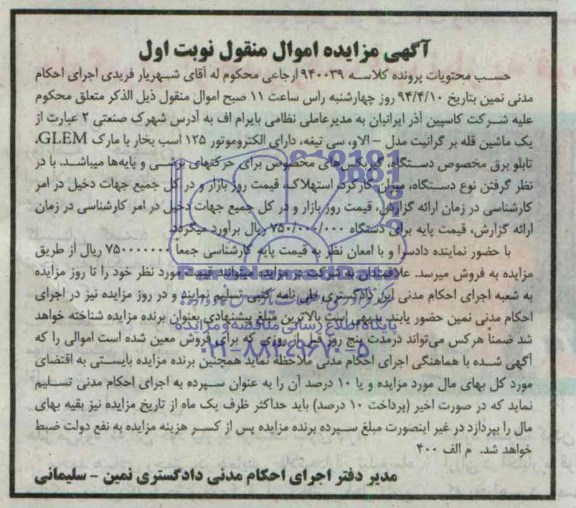 آگهی مزایده اموال منقول نوبت اول
حسب محتویات پرونده کلاسه ۹۴۰۰۳۹ ارجاعی محکوم له آقای شهریار فریدی اجرای احکام
مدنی نمین بتاریخ ۹۴/۴/۱۰ روز چهارشنبه راس ساعت ۱۱ صبح اموال منقول ذیل الذکر متعلق محکوم
علیه شرکت کاسپین آذر ایرانیان به مدیرعاملی نظامی بایرام اف به آدرس شهرک صنعتی ۲ عبارت از
یک ماشین قله بر گرانیت مدل – الاو، سی تیغه، دارای الکتروموتور ۱۲۵ اسب بخار با مارک GLEM،
تابلو برق مخصوص دستگاه، گیربکس‌های مخصوص برای حرکتهای برشی و پایه‌ها میباشد. با در
نظر گرفتن نوع دستگاه، میزان کارکرد، استهلاک، قیمت روز بازار و در کل جمیع جهات دخیل در امر
کارشناسی در زمان ارائه گزارش، قیمت روز بازار و در کل جمیع جهات دخیل در امر کارشناسی در زمان
ارائه گزارش، قیمت پایه برای دستگاه ۷۵۰/۰۰۰/۰۰۰ ریال برآورد میگردد.
با حضور نماینده دادسرا و با امعان نظر به قیمت پایه کارشناسی جمعاً ۷۵۰۰۰۰۰۰۰ ریال از طریق
مزایده به فروش میرسد. علاقمندان به شرکت در مزایده میتوانند قیمت مورد نظر خود را تا روز مزایده
به شعبه اجرای احکام مدنی این دادگستری طی نامه کتبی تسلیم نمایند و در روز مزایده نیز در اجرای
احکام مدنی نمین حضور یابند بدیهی است بالاترین مبلغ پیشنهادی بعنوان برنده مزایده شناخته خواهد
شد ضمناً هرکس می‌تواند درمدت پنج روز قبل از روزی که برای فروش معین شده است اموالی را که
آگهی شده با هماهنگی اجرای احکام مدنی ملاحظه نماید همچنین برنده مزایده بایستی به اقتضای
مورد کل بهای مال مورد مزایده و یا ۱۰ درصد آن را به عنوان سپرده به اجرای احکام مدنی تسلیم
نماید که در صورت اخیر (پرداخت ۱۰ درصد) باید حداکثر ظرف یک ماه از تاریخ مزایده نیز بقیه بهای
مال را بپردازد در غیر اینصورت مبلغ سپرده برنده مزایده پس از کسر هزینه مزایده به نفع دولت ضبط
خواهد شد. م الف ۴۰۰
مدیر دفتر اجرای احکام مدنی دادگستری نمین – سلیمانی
پایگاه اطلاع رسانی مناقصه و مزایده
۰۲۱-۸۸۳۴۹۶۷۰-۵